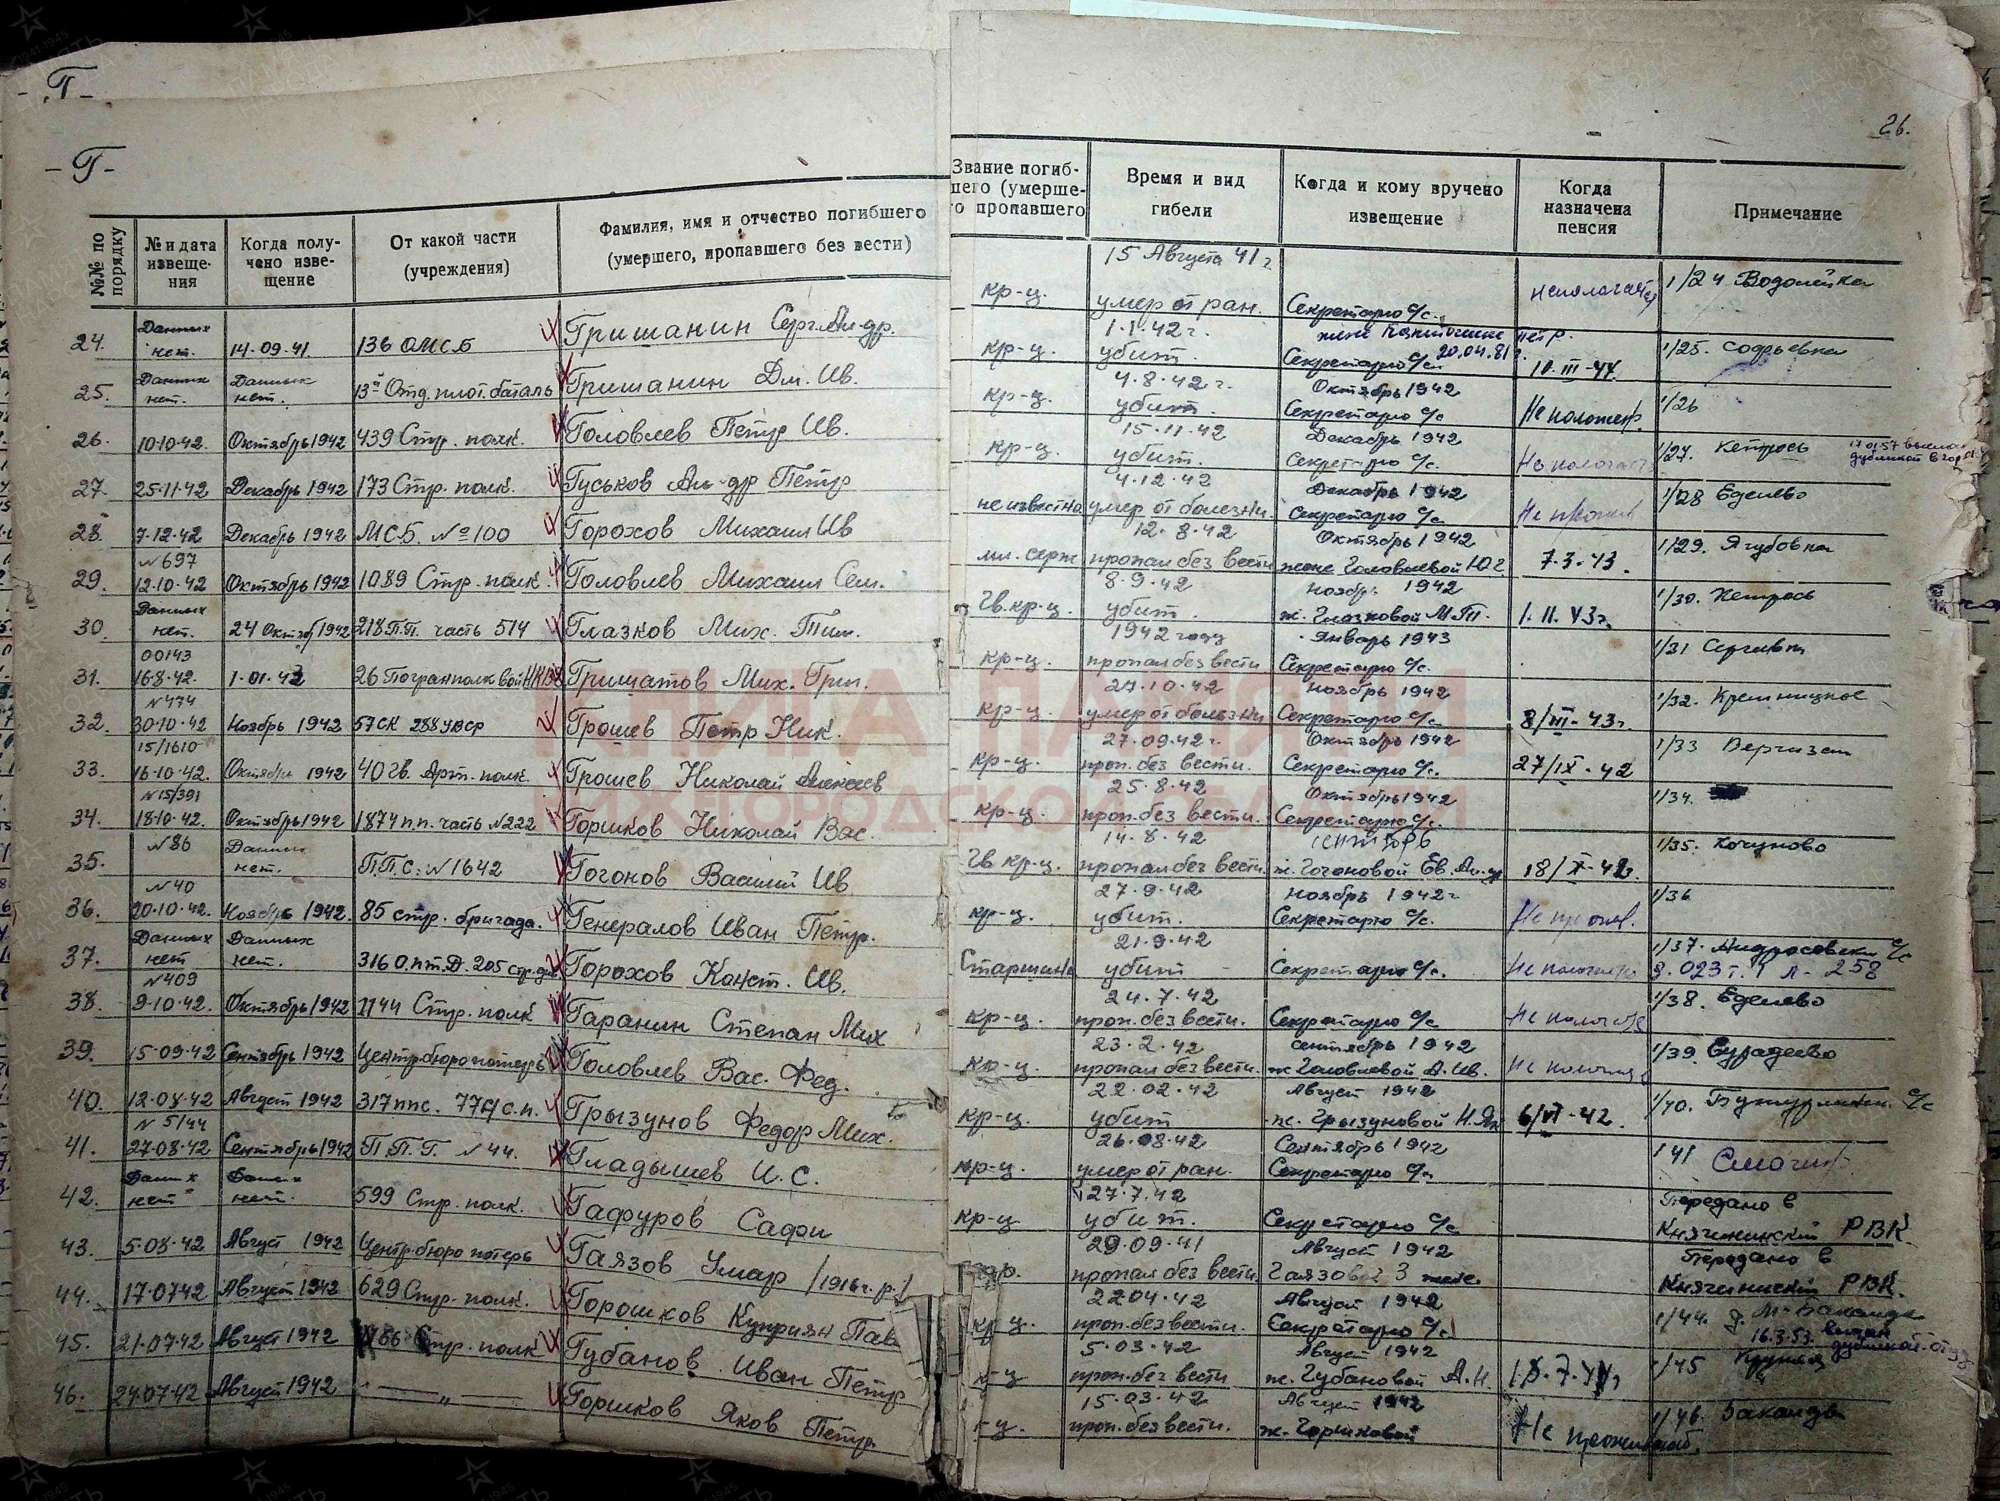 -Г-
-Г-
26.
№№ по порядку
№ и дата извещения
Когда получено извещение
От какой части (учреждения)
Фамилия, имя и отчество погибшего (умершего, пропавшего без вести)
Звание погиб-
шего (умерше-
го пропавшего
Время и вид гибели
Когда и кому вручено извещение
Когда назначена пенсия
Примечание
24. Данных нет. 14.09.41. 136 ОМСБ Гришанин Серг. Ал-др. кр-ц. 15 Августа 41 г умер от ран. Секретарю с/с. 1/24 Водолейка
25. Данных нет. Данных нет. 13й Отд. плот. баталь Гришанин Дм. Ив. кр-ц. 1.1.42 г. убит. Секретарю с/с 20.04.81 г. 10-III-44. 1/25.
26. 10.10.42. Октябрь 1942 439 Стр. полк. Головлев Петр Ив. кр-ц. 4.8.42 г. убит. Октябрь 1942 Секретарю с/с Не положен. 1/26
27. 25.11.42 Декабрь 1942 173 Стр. полк. Гуськов Ал-др Петр кр-ц. 15.11.42 убит. Декабрь 1942 Секретарю с/с. 1/27. Кетрось
28. 7.12.42 Декабрь 1942 МСБ. № 100 Горохов Михаил Ив неизвестна 4.12.42 умер от болезни. Декабрь 1942 Секретарю с/с 1/28 Еделево
29. №697 12.10.42 Октябрь 1942 1089 Стр. полк. Головлев Михаил Сем. мл. серж 12.8.42 пропал без вести Октябрь 1942 жене Головлевой 7.3.43. 1/29. Ягубовка
30. Данных нет. 24 Октяб 1942 218 П.П. часть 514 Глазков Мих. Тим. Гв. кр-ц. 8.9.42 убит. Ноябрь 1942 ж. Глазковой М.Т. 1.11.43г. 1/30. Кетрось
31. 00143 168.42. 1.01.43 26 Погранполк вой НКВД Гришатов Мих. Григ. кр-ц. 1942 году пропал без вести Январь 1943 Секретарю с/с. 1/31 Сергеевка
32. №474 30.10.42 Ноябрь 1942 57 СК Грошев Петр Ник. кр-ц. 27.10.42 умер от болезни Ноябрь 1942 Секретарю с/с 8/III-43г. 1/32.
33. 15/1610 16.10.42. Октябрь 1942 40 Гв. Арт. полк. Грошев Николай Алексеев кр-ц. 27.09.42 г. проп. без вести. Октябрь 1942 Секретарю с/с. 27/IX-42 1/33 Вергизей
34. №15/391 18.10.42. Октябрь 1942 1874 п.п. часть №222 Горшков Николай Вас. кр-ц. 25.8.42 проп. без вести. Октябрь 1942 Секретарю с/с. 1/34.
35. №86 Данных нет. П.П.С. №1642 Гогонов Василий Ив Гв. кр-ц. 14.8.42 пропал без вести сентябрь ж. Гогоновой Ев. 18/X-42г. 1/35. Кочуново
36. №40 20.10.42. Ноябрь 1942. 85 стр. бригада. Генералов Иван Петр. кр-ц. 27.9.42 убит. Ноябрь 1942г Секретарю с/с. 1/36
37. Данных нет Данных нет. 316 О.пт.Д. 205 стр. див Горохов Конст. Ив. Старшина 21.9.42 убит Секретарю с/с. 1/37. Андросовский с/с л. 258
38. №409 9.10.42 Октябрь 1942 1144 Стр. полк Гаранин Степан Мих кр-ц. 24.7.42 проп. без вести. Секретарю с/с 1/38. Еделево
39. 15.09.42 Сентябрь 1942 Центр. бюро потерь Головлев Вас. Фед. кр-ц. 23.2.42 пропал без вести. Сентябрь 1942 ж Головлевой А. Ив. 1/39 Сурадеево
40. 12.08.42 Август 1942 317 ппс. 774 с.п. Грызунов Федор Мих. кр-ц. 22.02.42 убит Август 1942 ж. Грызуновой Н. 6/VI-42. 1/40. с/с
41. № 5/44 27.08.42 Сентябрь 1942 П.П.Г. №44. Гладышев И. С. кр-ц. 26.08.42 умер от ран. Сентябрь 1942 Секретарю с/с 1/41
42. Данных нет Данных нет. 599 Стр. полк. Гафуров Сафи кр-ц 27.7.42 убит. Секретарю с/с Передано в Княгининский РВК.
43. 5.08.42 Август 1942 Центр. бюро потерь Гаязов Умар /1916 г.р./ 29.09.41 пропал без вести Август 1942 Гаязовой З жене. Передано в Княгининский РВК.
44. 17.0742 Август 1942 629 Стр. полк. Горошков Куприян Пав кр-ц. 2204.42 проп. без вести. Август 1942 Секретарю с/с 1/44. д. М-Бакалды 16.3.53.
45. 21.07.42 Август 1942 Стр. полк Губанов Иван Петр 5.03.42 проп. без вести Август 1942 ж. Губановой А.Н. 1/45
46. 24.07.42 Август 1942 — „ — Горшков Яков Петр 15.03.42 проп. без вести. Август 1942 ж. Горшковой 1/46. Бакалды
КНИГА ПАМЯТИ
НИЖЕГОРОДСКОЙ ОБЛАСТИ